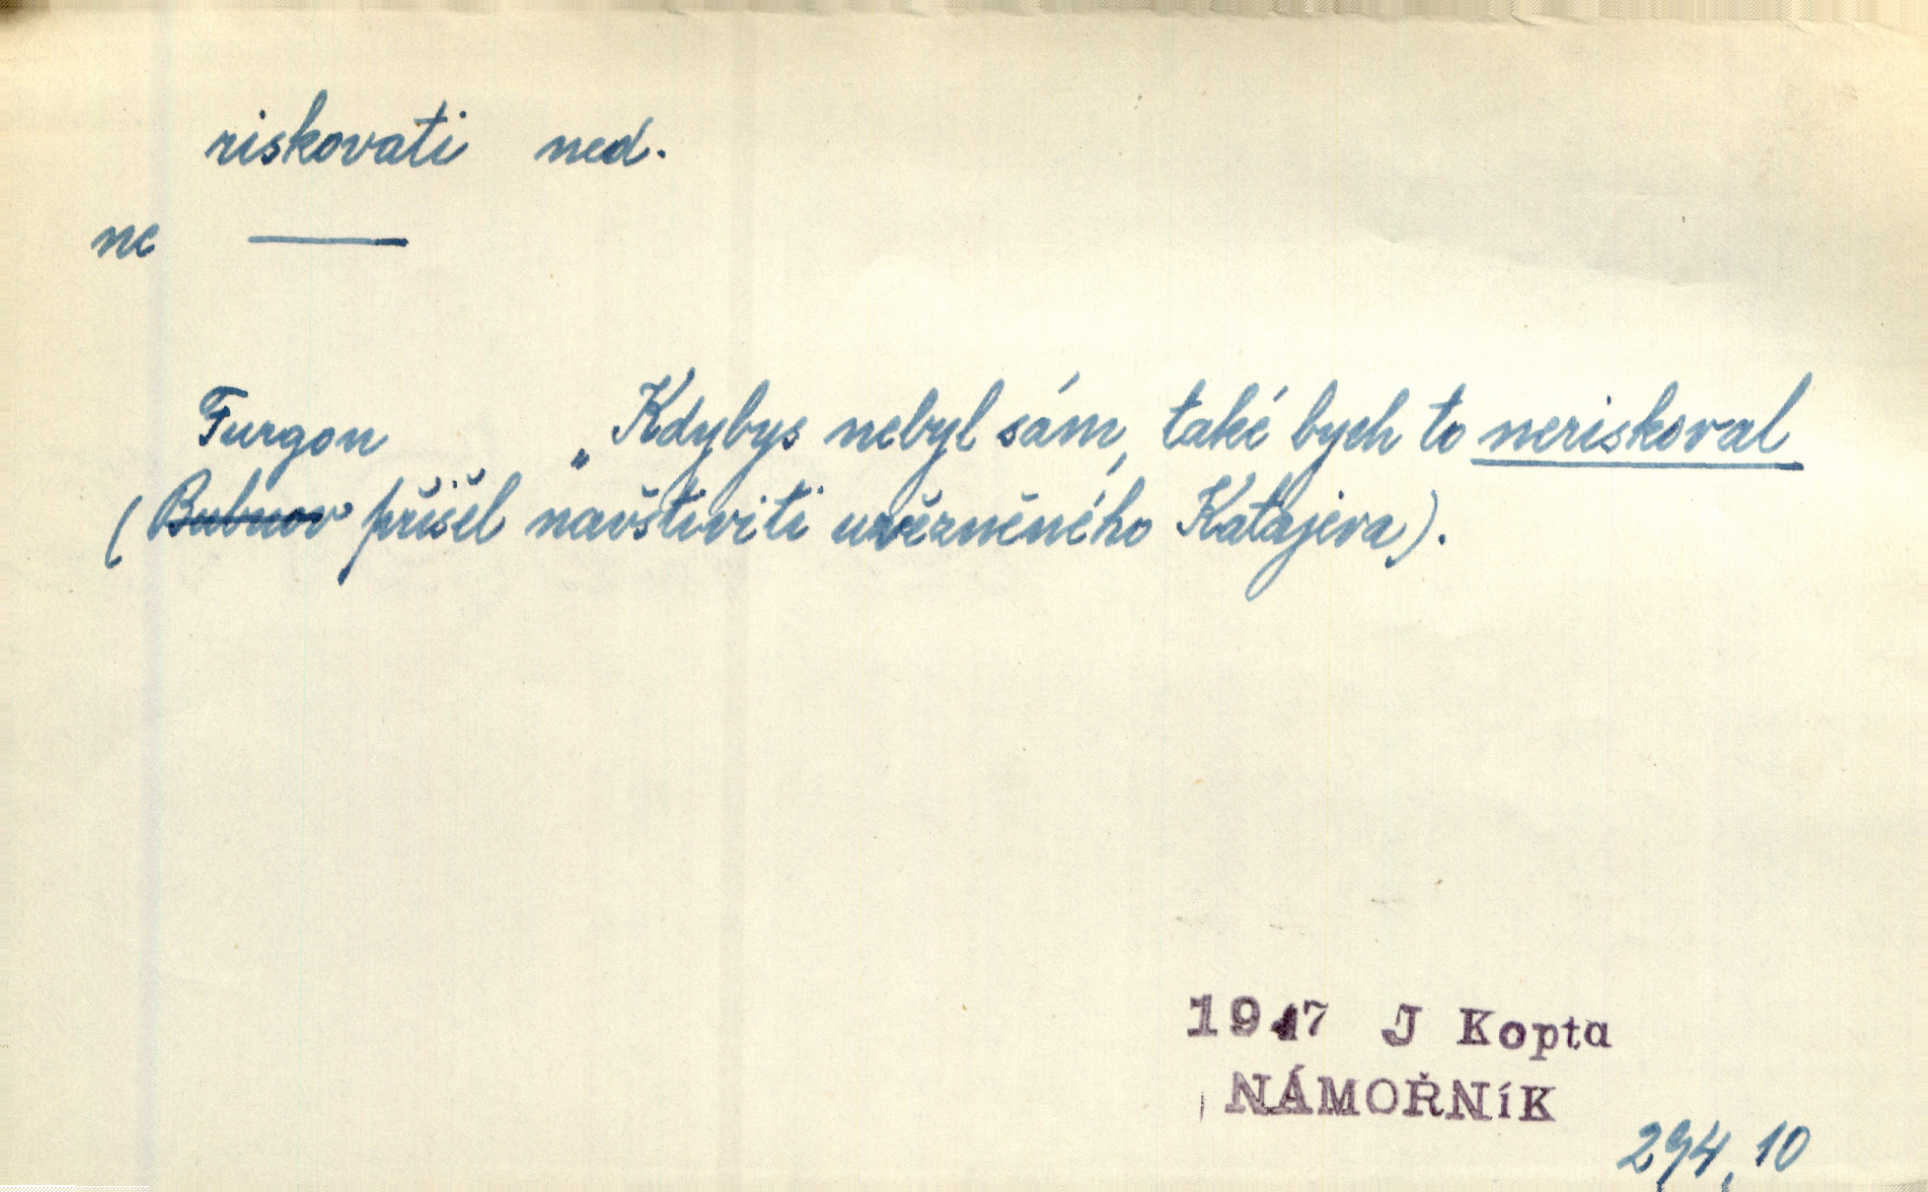 riskovati ned.
ne ———
Furgon „Kdybys nebyl sám, také bych to neriskoval
(Bubnov přišel navštíviti uvězněného Katajeva).
1947 J Kopta
NÁMOŘNíK
294, 10